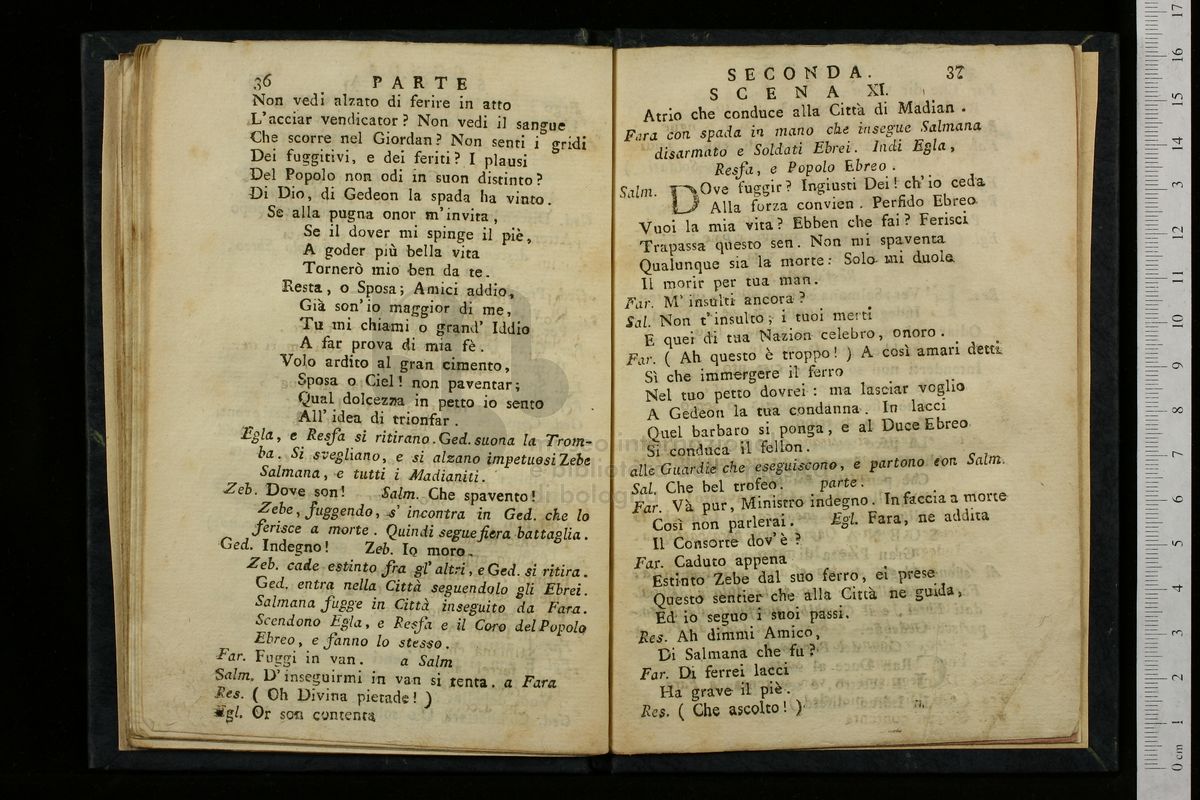 36 PARTE
Non vedi alzato di ferire in atto
L'acciar vendicator? Non vedi il sangue
Che scorre nel Giordan? Non senti i gridi
Dei fuggitivi, e dei feriti? I plausi
Del Popolo non odi in suon distinto?
Di Dio, di Gedeon la spada ha vinto.
Se alla pugna onor m'invita,
Se il dover mi spinge il piè,
A goder più bella vita
Tornerò mio ben da te.
Resta, o Sposa; Amici addio,
Già son'io maggior di me,
Tu mi chiami o grand' Iddio
A far prova di mia fè.
Volo ardito al gran cimento,
Sposa o Ciel! non paventar;
Qual dolcezza in petto io sento
All' idea di trionfar.
Egla, e Resfa si ritirano. Ged. suona la Trom-
ba. Si svegliano, e si alzano impetuosi Zebe
Salmana, e tutti i Madianiti.
Zeb. Dove son! Salm. Che spavento!
Zebe, fuggendo, s' incontra in Ged. che lo
ferisce a morte. Quindi segue fiera battaglia.
Ged. Indegno! Zeb. Io moro.
Zeb. cade estinto fra gl' altri, e Ged. si ritira.
Ged. entra nella Città seguendolo gli Ebrei.
Salmana fugge in Città inseguito da Fara.
Scendono Egla, e Resfa e il Coro del Popolo
Ebreo, e fanno lo stesso.
Far. Fuggi in van. a Salm
Salm. D' inseguirmi in van si tenta. a Fara
Res. ( Oh Divina pietade! )
Egl. Or son contenta
SECONDA. 37
SCENA XI.
Atrio che conduce alla Città di Madian.
Fara con spada in mano che insegue Salmana
disarmato e Soldati Ebrei. Indi Egla,
Resfa, e Popolo Ebreo.
Salm. DOve fuggir? Ingiusti Dei! ch'io ceda
Alla forza convien. Perfido Ebreo
Vuoi la mia vita? Ebben che fai? Ferisci
Trapassa questo sen. Non mi spaventa
Qualunque sia la morte: Solo mi duole
Il morir per tua man.
Far. M' insulti ancora?
Sal. Non t'insulto; i tuoi merti
E quei di tua Nazion celebro, onoro.
Far. ( Ah questo è troppo! ) A così amari detti
Sì che immergere il ferro
Nel tuo petto dovrei: ma lasciar voglio
A Gedeon la tua condanna. In lacci
Quel barbaro si ponga, e al Duce Ebreo
Si conduca il fellon.
alle Guardie che eseguiscono, e partono con Salm.
Sal. Che bel trofeo. parte.
Far. Và pur, Ministro indegno. In faccia a morte
Così non parlerai. Egl. Fara, ne addita
Il Consorte dov'è?
Far. Caduto appena
Estinto Zebe dal suo ferro, ei prese
Questo sentier che alla Città ne guida,
Ed io seguo i suoi passi.
Res. Ah dimmi Amico,
Di Salmana che fu?
Far. Di ferrei lacci
Ha grave il piè.
Res. ( Che ascolto! )